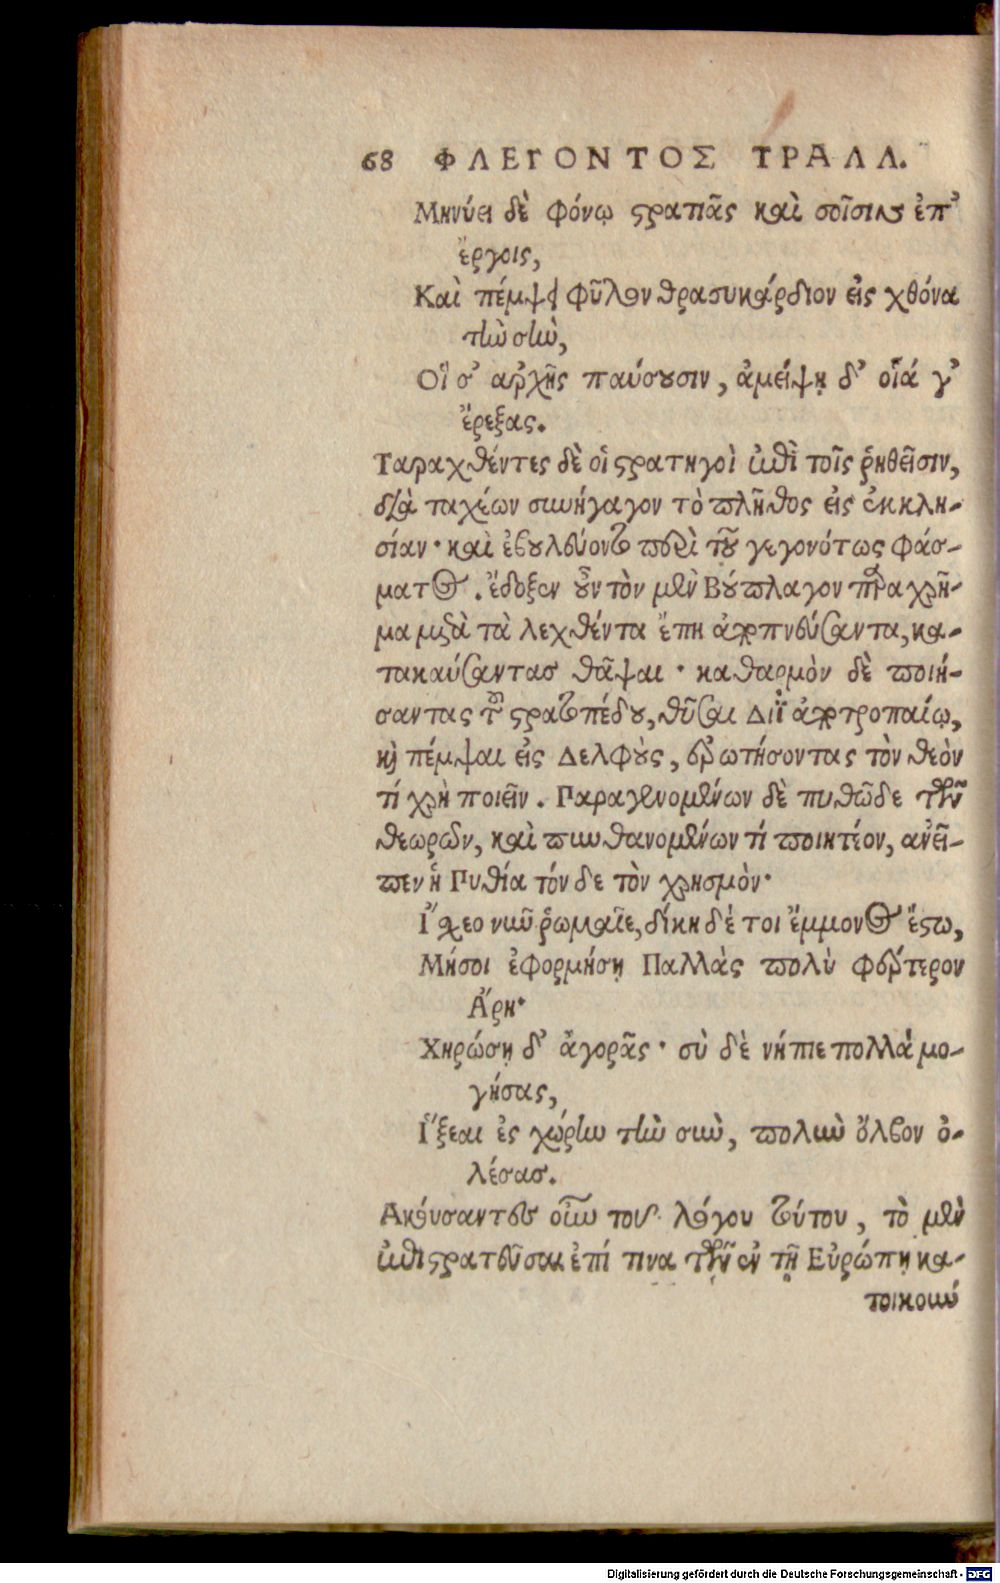 68 ΦΛΕΓΟΝΤΟΣ ΤΡΑΛΛ.
Μηνύει δὲ φόνῳ στρατιᾶς καὶ σοῖσιν ἐπ'
ἔργοις,
Καὶ πέμψει φῦλον θρασυκάρδιον εἰς χθόνα
τὴν σὴν,
Οἵ σ' ἀρχῆς παύσουσιν, ἀμείψῃ δ' οἷά γ'
ἔρεξας.
Ταραχθέντες δὲ οἱ στρατηγοὶ ἐπὶ τοῖς ῥηθεῖσιν,
διὰ ταχέων συνήγαγον τὸ πλῆθος εἰς ἐκκλη-
σίαν· καὶ ἐβουλεύοντο περὶ τοῦ γεγονότως φάσ-
ματος. ἔδοξεν οὖν τὸν μὲν Βούπλαγον παραχρῆ-
μα μετὰ τὰ λεχθέντα ἔπη ἀποπνεύσαντα, κα-
τακαύσαντας θάψαι· καθαρμὸν δὲ ποιή-
σαντας τοῦ στρατοπέδου, θῦσαι Διῒ ἀποτροπαίῳ,
καὶ πέμψαι εἰς Δελφοὺς, ἐρωτήσοντας τὸν θεὸν
τί χρὴ ποιεῖν. Παραγενομένων δὲ πυθῶδε τῶν
θεωρῶν, καὶ πυνθανομένων τί ποιητέον, ἀνεῖ-
πεν ἡ Πυθία τόν δε τὸν χρησμὸν·
Ἴσχεο νῦν ῥωμαῖε, δίκη δέ τοι ἔμμονος ἔστω,
Μήσοι ἐφορμήσῃ Παλλὰς πολὺ φέρτερον
Ἄρη·
Χηρώσῃ δ' ἀγορᾶς· σὺ δὲ νήπιε πολλά μο-
γήσας,
Ἵξεαι ἐς χώρην τὴν σὴν, πολὺν ὄλβον ὀ-
λέσας.
Ακούσαντες οὖν τοῦ λόγου τούτου, τὸ μὲν
ἐπιστρατεῦσαι ἐπί τινα τῶν ἐν τῇ Εὐρώπῃ κα-
τοικουν
Digitalisierung gefördert durch die Deutsche Forschungsgemeinschaft - DFG